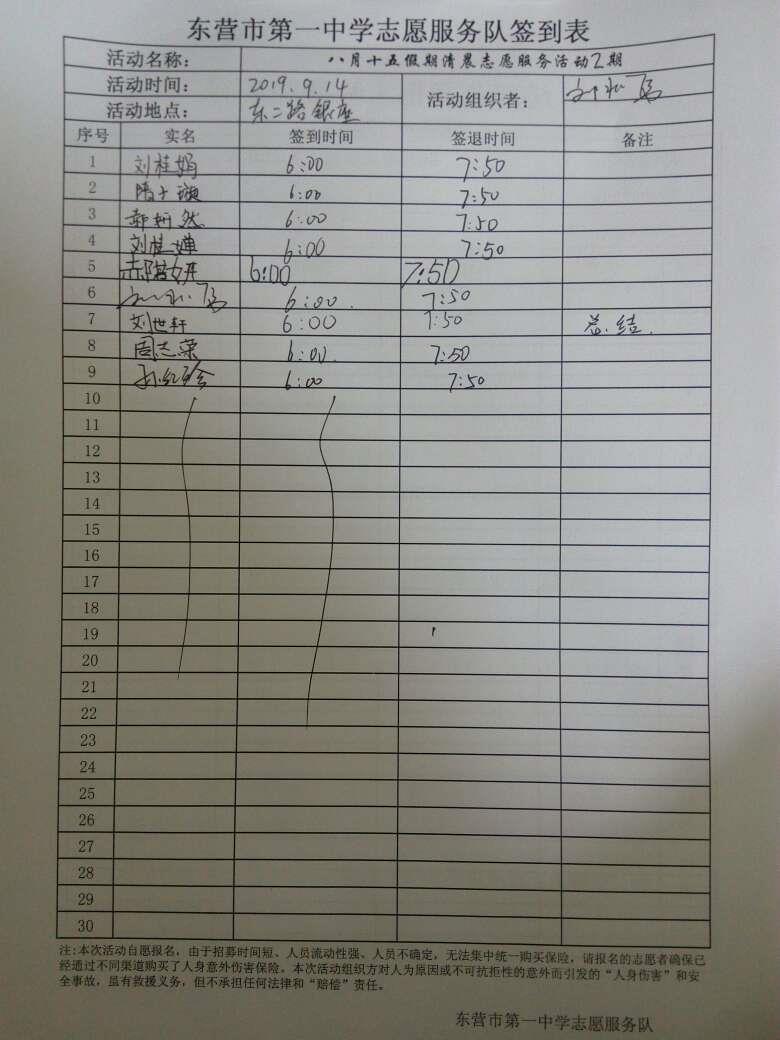 东营市第一中学志愿服务队签到表
活动名称: 八月十五假期清晨志愿服务活动2期
活动时间: 2019.9.14 活动组织者:
活动地点: 东二路银座
序号 实名 签到时间 签退时间 备注
1 刘桂娟 6:00 7:50
2 隋子璇 6:00 7:50
3 郭妍然 6:00 7:50
4 刘桂婵 6:00 7:50
5 6:00 7:50
6 6:00. 7:50
7 刘世轩 6:00 7:50 总结.
8 周志荣 6:00. 7:50
9 6:00 7:50
10
11
12
13
14
15
16
17
18
19
20
21
22
23
24
25
26
27
28
29
30
注:本次活动自愿报名，由于招募时间短、人员流动性强、人员不确定，无法集中统一购买保险，请报名的志愿者确保已
经通过不同渠道购买了人身意外伤害保险。本次活动组织方对人为原因或不可抗拒性的意外而引发的“人身伤害”和安
全事故，虽有救援义务，但不承担任何法律和“赔偿”责任。
东营市第一中学志愿服务队